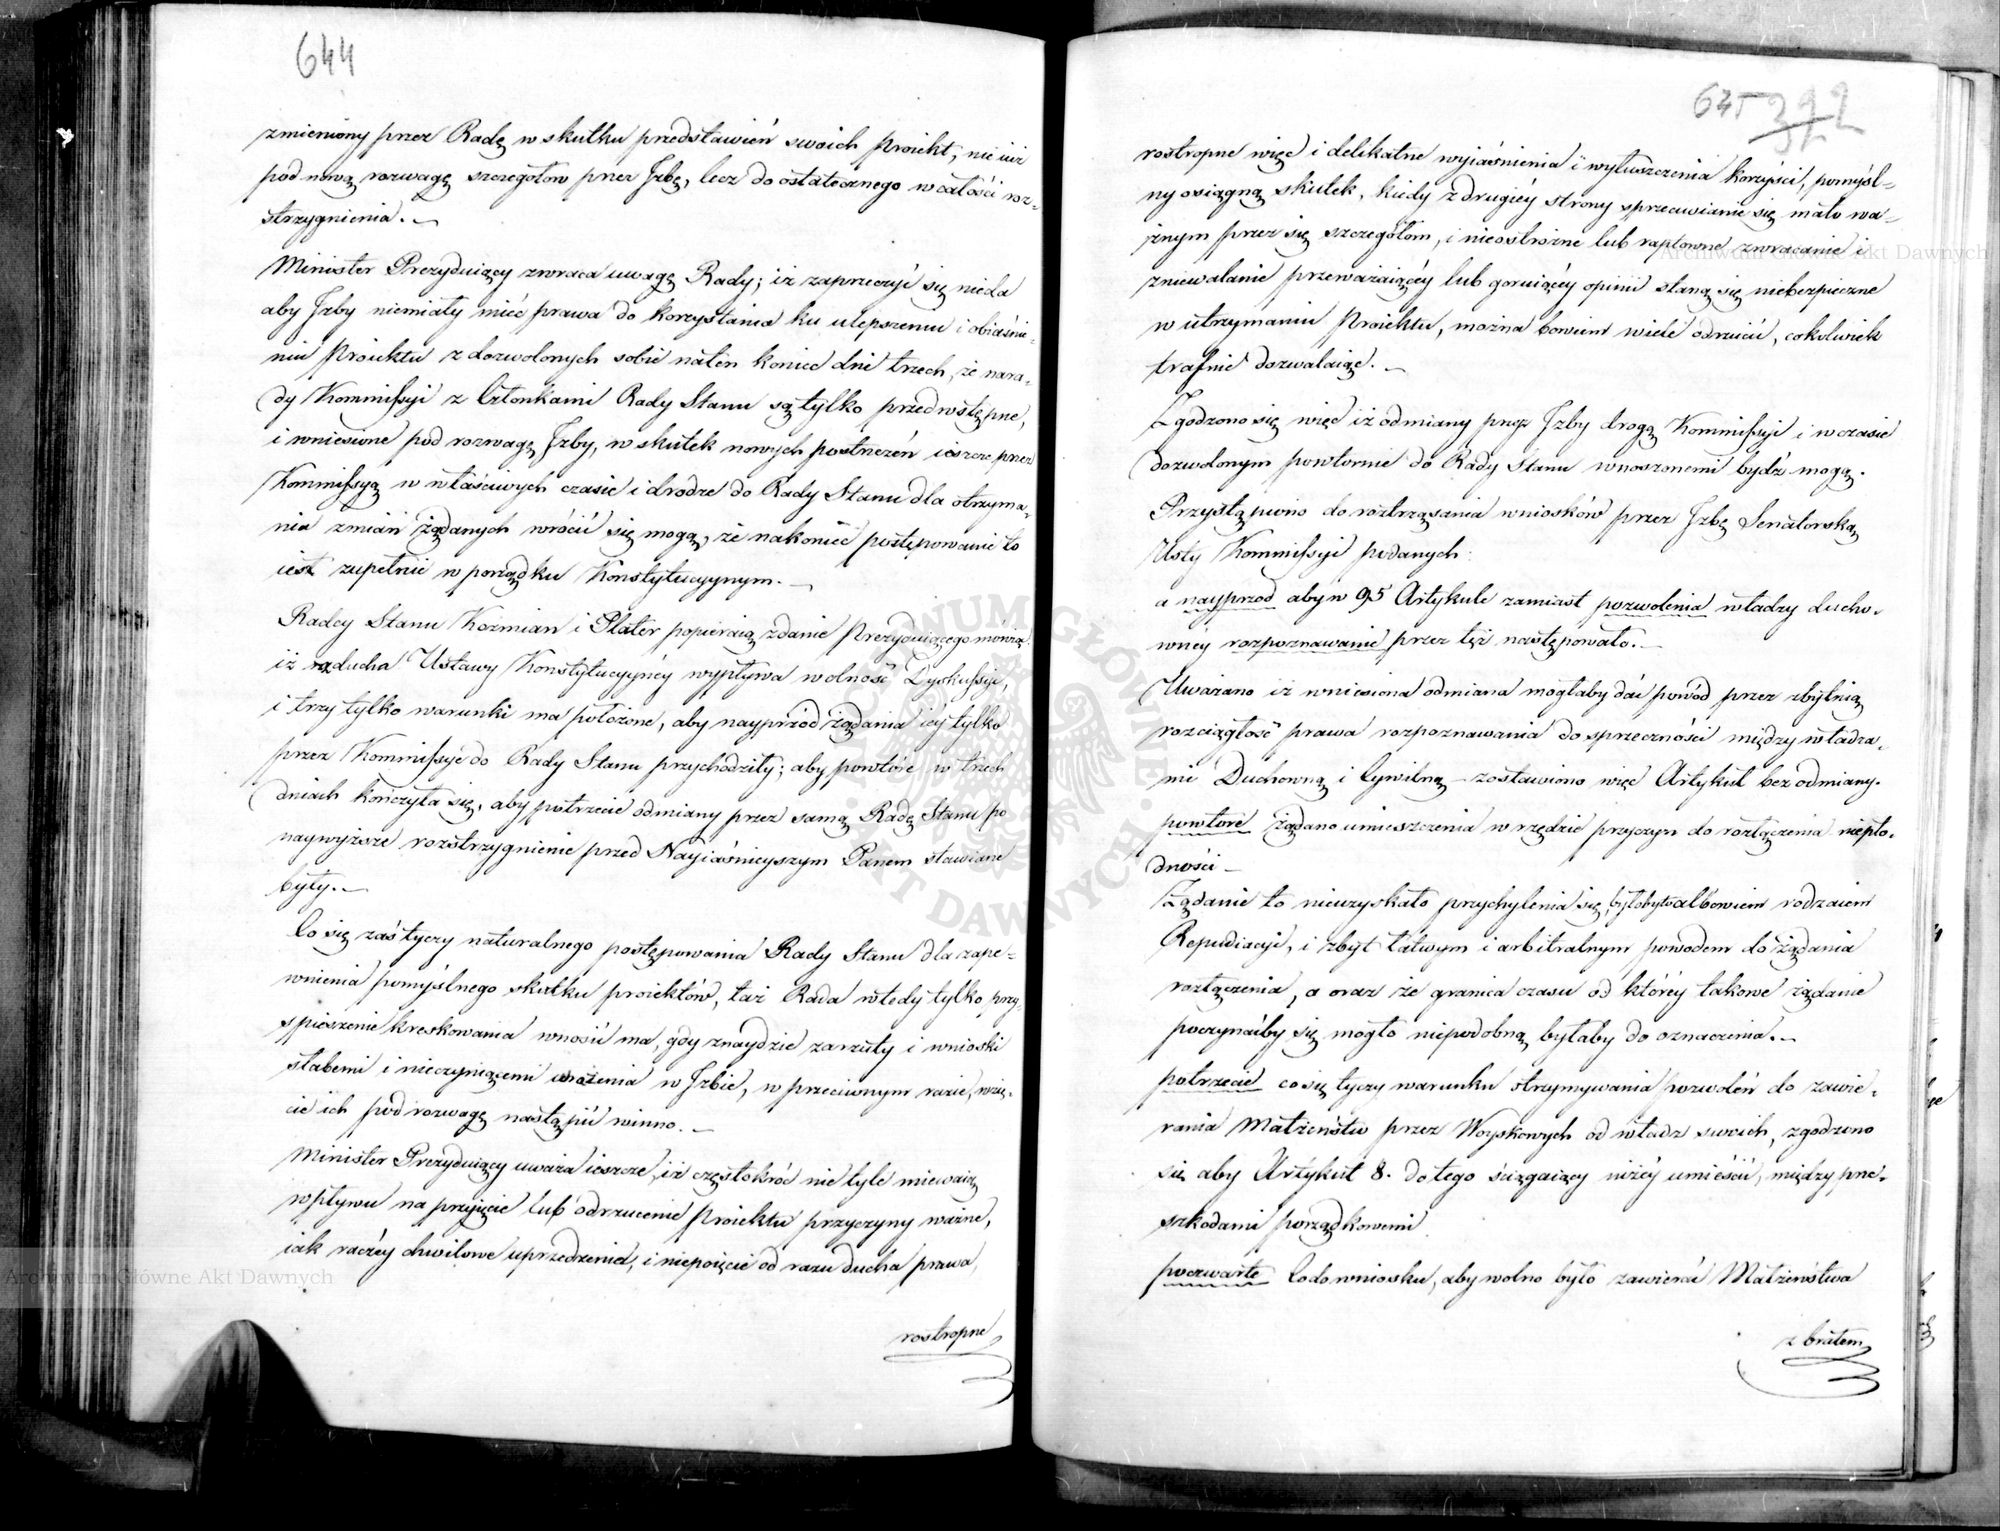 644
zmieniony przez Radę w skutku przedstawień swoich Proiekt, nie iuż
pod nową rozwagę szczegółów przez Izbę, lecz do ostatecznego w całości roz-
strzygnienia. —
Minister Prezyduiący zwraca uwagę Rady; iż zaprzeczyć się nieda
aby Izby niemiały mieć prawa do korzystania ku ulepszeniu i obiaśnie-
niu Proiektu z dozwolonych sobie naten koniec dni trzech, że nara-
dy Kommissyi z Członkami Rady Stanu są tylko przedwstępne,
i wniesione pod rozwagę Izby, w skutek nowych postrzeżeń ieszcze przez
Kommissyą w właściwych czasie i drodze do Rady Stanu dla otrzyma-
nia zmian żądanych wrócić się mogą, że nakoniec postępowanie to
iest zupełnie w porządku Konstytucyynym. —
Radcy Stanu Koźmian i Plater popieraią zdanie Prezyduiącego mówiąc
iż z ducha Ustawy Konstytucyyney wypływa wolność Dyskussyi,
i trzy tylko warunki ma położone, aby nayprzód żądania iey tylko
przez Kommissye do Rady Stanu przychodziły; aby powtóre w trzech
dniach kończyła się, aby potrzecie odmiany przez samą Radę Stanu po
naywyższe rozstrzygnienie przed Nayiaśnieyszym Panem stawiane
były. —
Co się zaś tyczy naturalnego postępowania Rady Stanu dla zape-
wnienia pomyślnego skutku proiektów, taż Rada wtedy tylko przy-
spieszenie kreskowania wnosić ma, gdy znaydzie zarzuty i wnioski
słabemi i nieczyniącemi wrażenia w Izbie, w przeciwnym razie, wzię-
cie ich pod rozwagę nastąpić winno. —
Minister Prezyduiący uważa ieszcze, iż częstokroć nie tyle miewaią
wpływu na przyięcie lub odrzucenie Proiektu przyczyny ważne,
iak raczey chwilowe uprzedzenia, i niepoięcie od razu ducha prawa,
rostropne
645 322
rostropne więc i delikatne wyiaśnienia i wyłuszczenia korzyści, pomyśl-
ny osiągną skutek, kiedy z drugiey strony sprzeciwianie się mało wa-
żnym przez się szczegółom, i nieostrożne lub raptowne zwracanie i
zniewalanie przeważaiącey lub goruiącey opinii staną się niebezpieczne
w utrzymaniu Proiektu, można bowiem wiele odrzucić, cokolwiek
trafnie dozwalaiąc. —
Zgodzono się więc iż odmiany przez Izby drogą Kommissyi i w czasie
dozwolonym powtórnie do Rady Stanu wnoszonemi bydź mogą.
Przystąpiono do roztrząsania wniosków przez Izbę Senatorską
Usty Kommissyi podanych:
a nayprzód aby w 95 Artykule zamiast pozwolenia władzy ducho-
wney rozpoznawanie przez tęż następowało. —
Uważano iż wniesiona odmiana mogłaby dać powód przez zbytnią
rozciągłość prawa rozpoznawania do sprzeczności między władza-
mi Duchowną i Cywilną — zostawiono więc Artykuł bez odmiany.
powtóre żądano umieszczenia w rzędzie przyczyn do rozłączenia niepło-
dności —
Żądanie to nieuzyskało przychylenia się, byłoby to albowiem rodzaiem
Repudiacyi, i zbyt łatwym i arbitralnym powodem do żądania
rozłączenia, a oraz że granica czasu od którey takowe żądanie
poczynaćby się mogło niepodobną byłaby do oznaczenia. —
potrzecie co się tyczy warunku otrzymywania pozwoleń do zawie-
rania Małżeństw przez Woyskowych od władz swoich, zgodzono
się aby Artykuł 8. do tego ściągaiący niżey umieścić, między prze-
szkodami porządkowemi
poczwarte Co do wniosku, aby wolno było zawierać Małżeństwa
z bratem
Archiwum Główne Akt Dawnych
Archiwum Główne Akt Dawnych